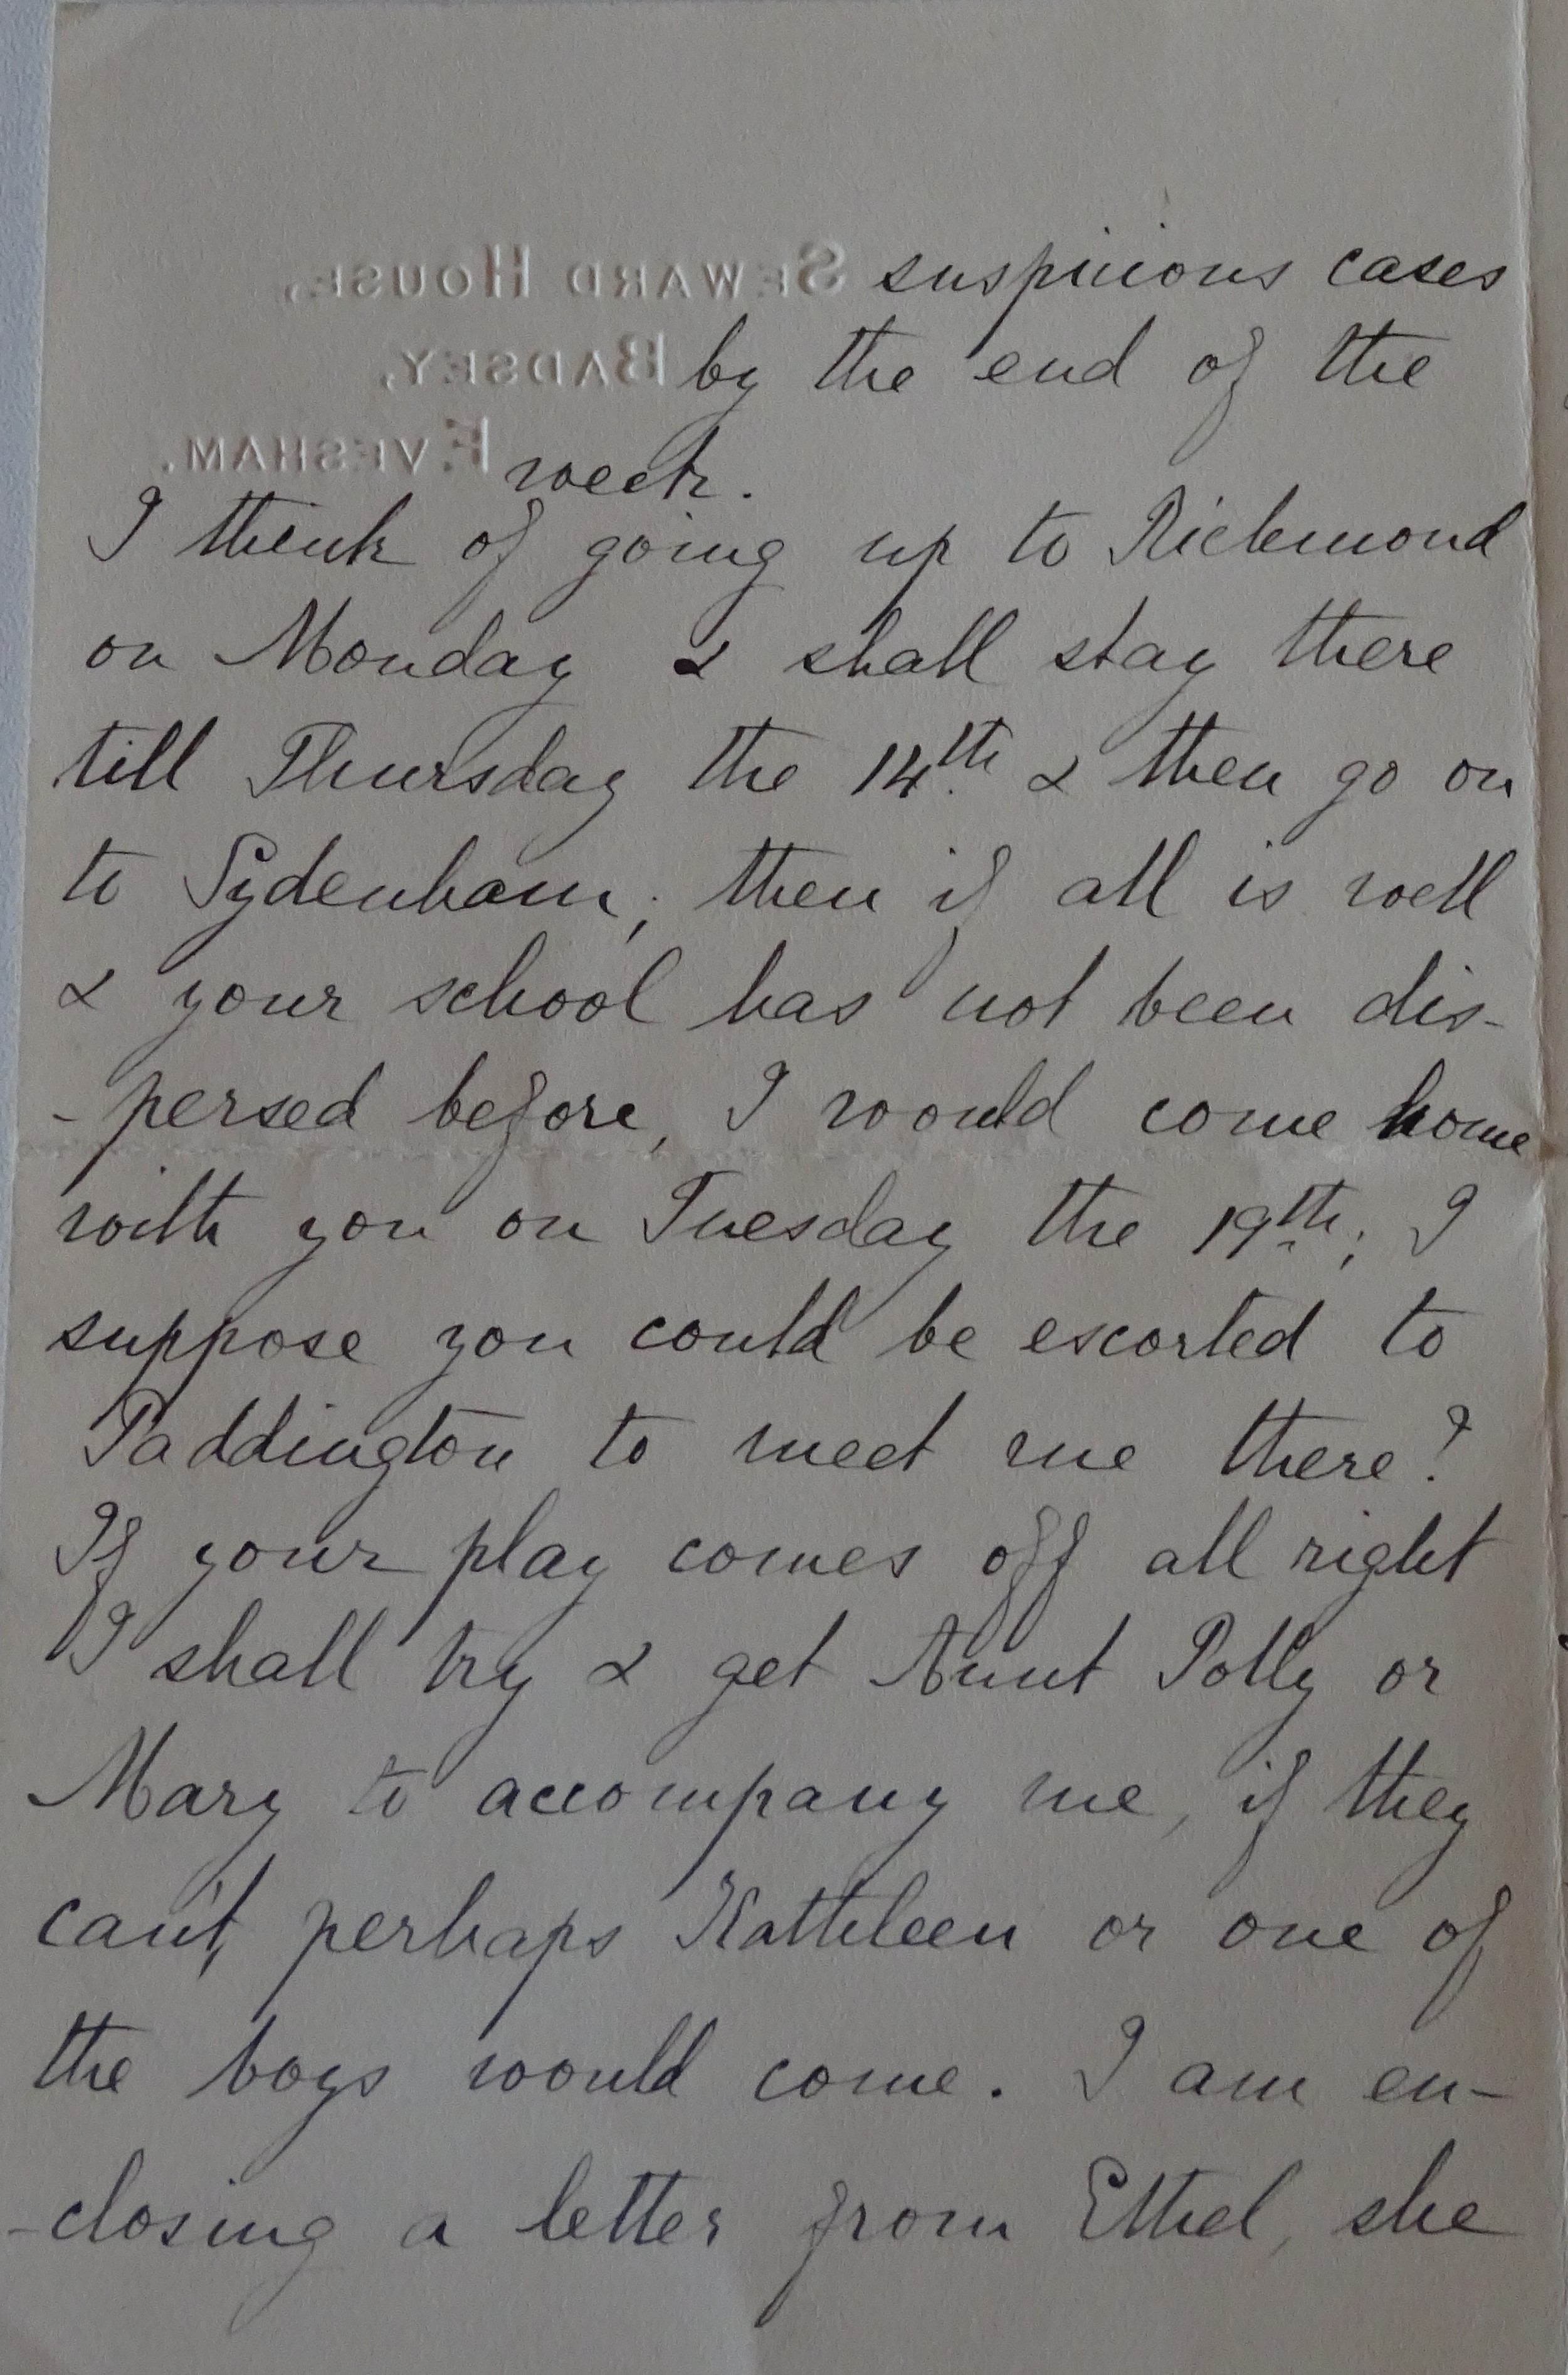 SEWARD HOUSE, suspicious cases
BADSEY, by the end of the
EVESHAM. week.
I think of going up to Richmond
on Monday & shall stay there
till Thursday the 14th. & then go on
to Sydenham; then if all is well
& your school has not been dis-
-persed before, I would come home
with you on Tuesday the 19th.; I
suppose you could be escorted to
Paddington to meet me there?
If your play comes off all right
I shall try & get Aunt Polly or
Mary to accompany me, if they
can't, perhaps Kathleen or one of
the boys would come. I am en-
-closing a letter from Ethel, she